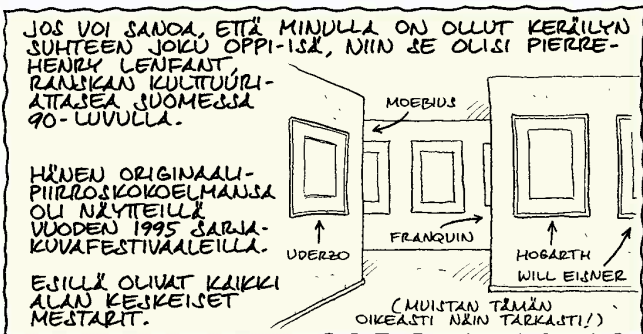 JOS VOI SANOA, ETTÄ MINULLA ON OLLUT KERÄILYN
SUHTEEN JOKU OPPI-ISÄ, NIIN SE OLISI PIERRE-
HENRY LENFANT,
RANSKAN KULTTUURI-
ATTASEA SUOMESSA
90-LUVULLA.
HÄNEN ORIGINAALI-
PIIRROSKOKOELMANSA
OLI NÄYTTEILLÄ
VUODEN 1995 SARJA-
KUVAFESTIVAALEILLA.
ESILLÄ OLIVAT KAIKKI
ALAN KESKEISET
MESTARIT.
MOEBIUS
UDERZO
FRANQUIN
HOGARTH
WILL EISNER
(MUISTAN TÄMÄN
OIKEASTI NÄIN TARKASTI!)